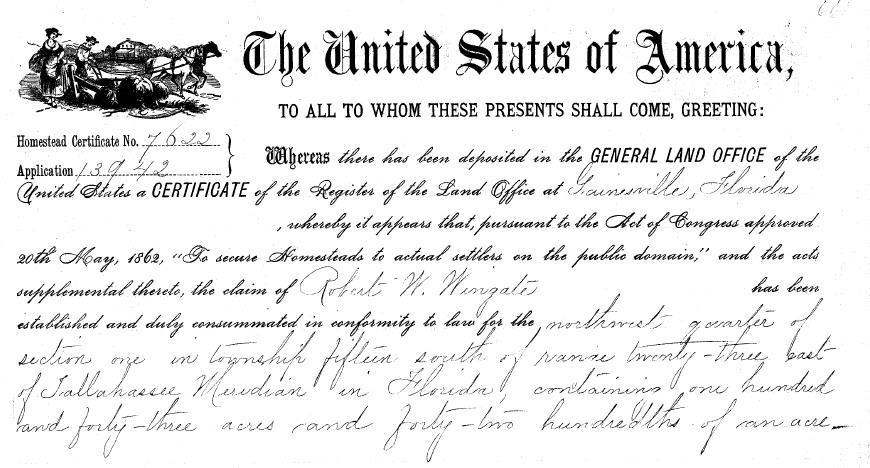 The United States of America,
TO ALL TO WHOM THESE PRESENTS SHALL COME, GREETING:
Homestead Certificate No. 7622
Application 13942
Whereas there has been deposited in the GENERAL LAND OFFICE of the
United States a CERTIFICATE of the Register of the Land Office at Gainesville, Florida
, whereby it appears that, pursuant to the Act of Congress approved
20th May, 1862, "To secure Homesteads to actual settlers on the public domain," and the acts
supplemental thereto, the claim of Robert W. Wingate has been
established and duly consummated in conformity to law for the northwest quarter of
section one in township fifteen south of range twenty-three east
of Tallahassee Meridian in Florida, containing one hundred
and forty-three acres and forty-two hundredths of an acre